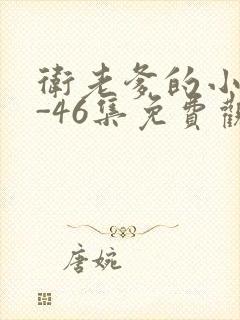 衛老爹的小
-46集免費觀
唐婉